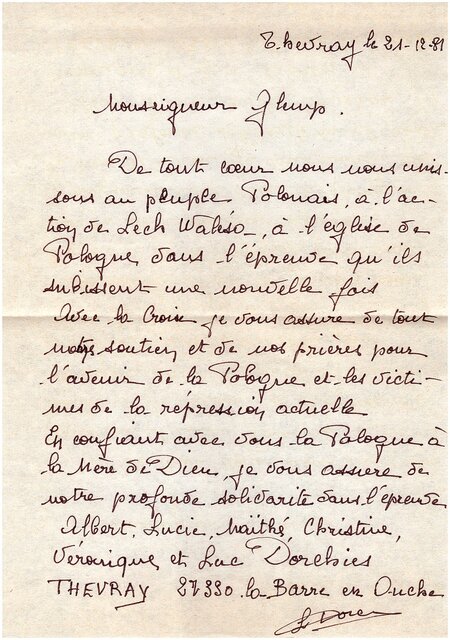 Thevray le 21-12-81
Monseigneur Glemp.
De tout cœur nous nous unis-
sons au peuple Polonais, à l'ac-
tion de Lech Walesa, à l'église de
Pologne dans l'épreuve qu'ils
subissent une nouvelle fois
Avec la Croix je vous assure de tout
notre soutien et de nos prières pour
l'avenir de la Pologne et les victi-
mes de la répression actuelle
En confiant avec vous la Pologne à
la Mère de Dieu, je vous assure de
notre profonde solidarité dans l'épreuve
Albert, Lucie, Maïthé, Christine,
Véronique et Luc
THEVRAY 27330 la Barre en Ouche